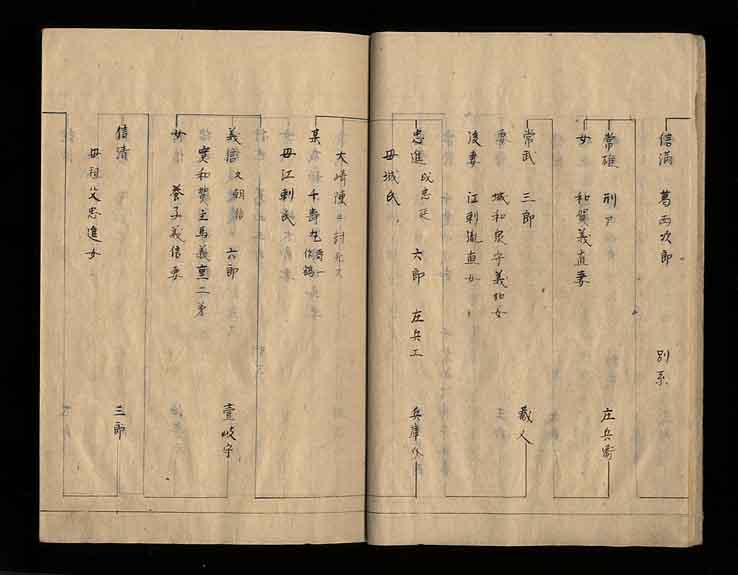 信満 葛西次郎 別系
常雄 刑 庄兵衛
女 和賀義直妻
常武 三郎 蔵人
妻 城和泉守義和女
後妻 江刺胤直女
忠進 改忠廷 六郎 庄兵工 兵庫介
母城氏
大崎陣ニ討死ス
某 千寿丸
母江刺氏
義信 又朝信 六郎 壹岐守
実和賀主馬義重二弟
女 養子義信妻
信清 三郎
母祖父忠進女